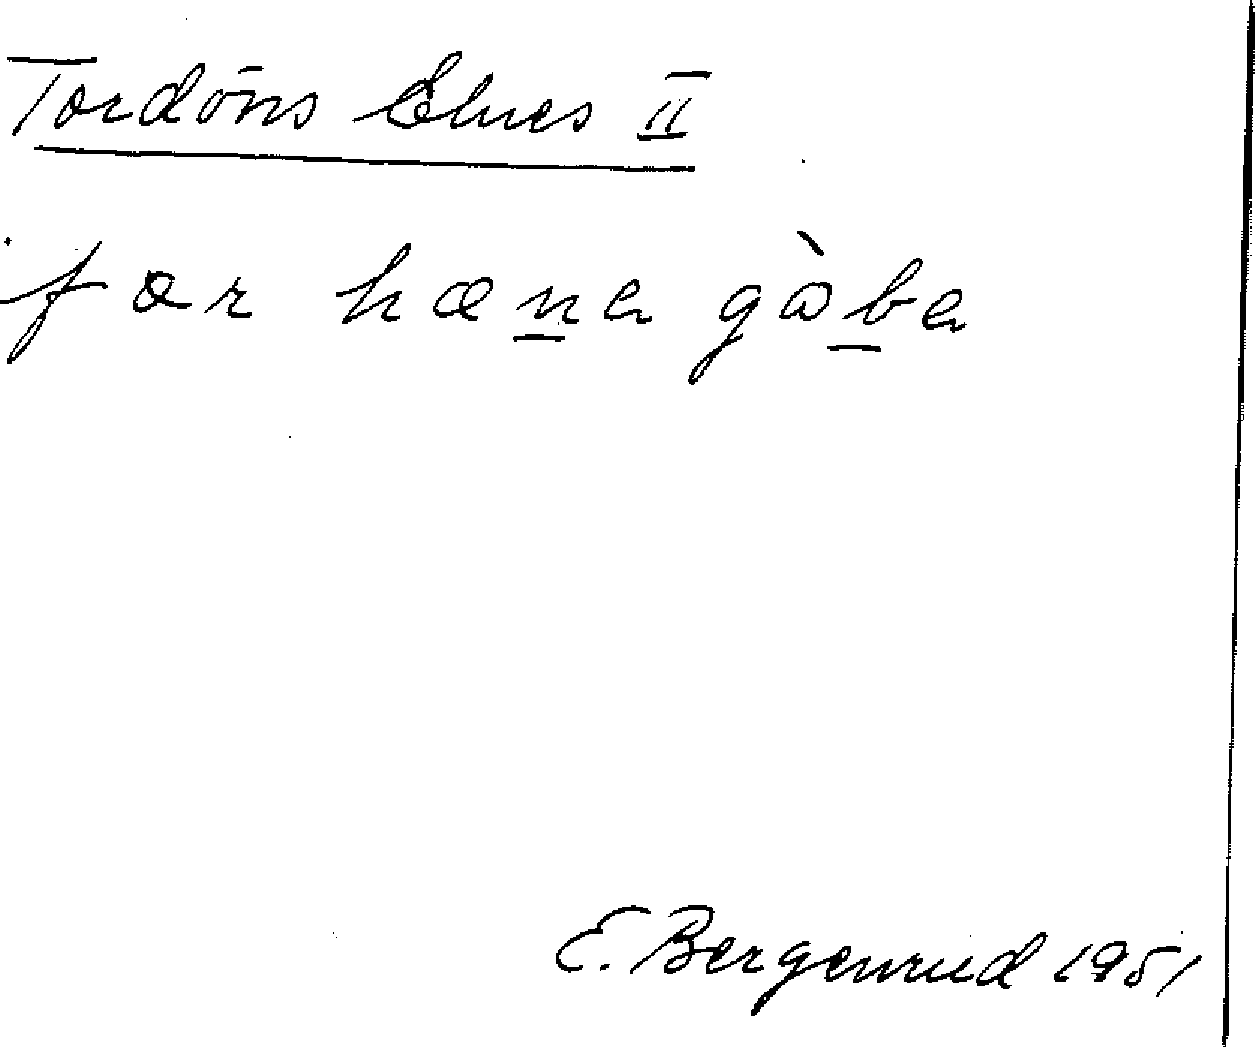 Tordöns Clues II
f ar hæna gàba
E. Bergenrud 1951